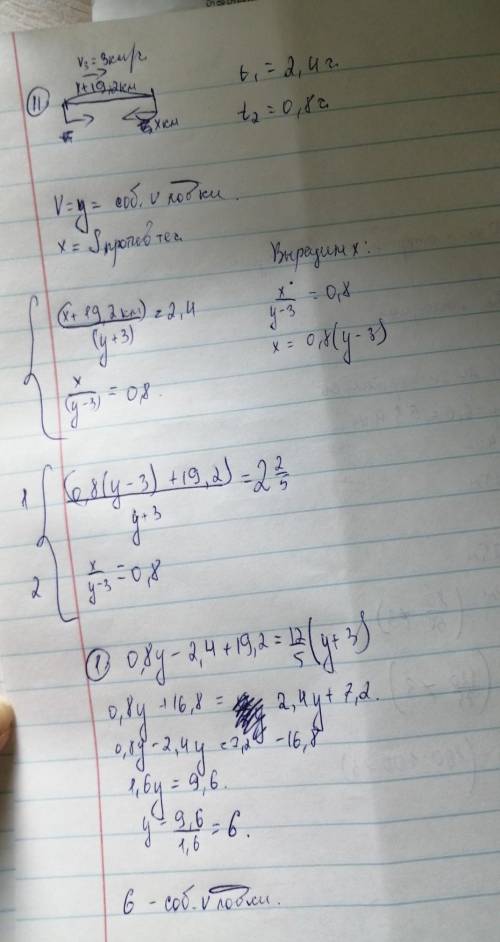 V₃ = 3км/ч
x+19,2км
11
xкм
t₁ = 2,4ч
t₂ = 0,8ч
V=y= соб. v лодки.
x = S против теч
(x+19,2км)/(y+3) = 2,4
x/(y-3) = 0,8.
Выразим x:
x/(y-3) = 0,8
x = 0,8(y-3)
1 (0,8(y-3)+19,2)/(y+3) = 2 2/5
2 x/(y-3) = 0,8
1 0,8y - 2,4 + 19,2 = 12/5 (y+3)
0,8y + 16,8 = 2,4y + 7,2.
0,8y - 2,4y = 7,2 - 16,8
1,6y = 9,6.
y = 9,6/1,6 = 6.
6 - соб. v лодки.